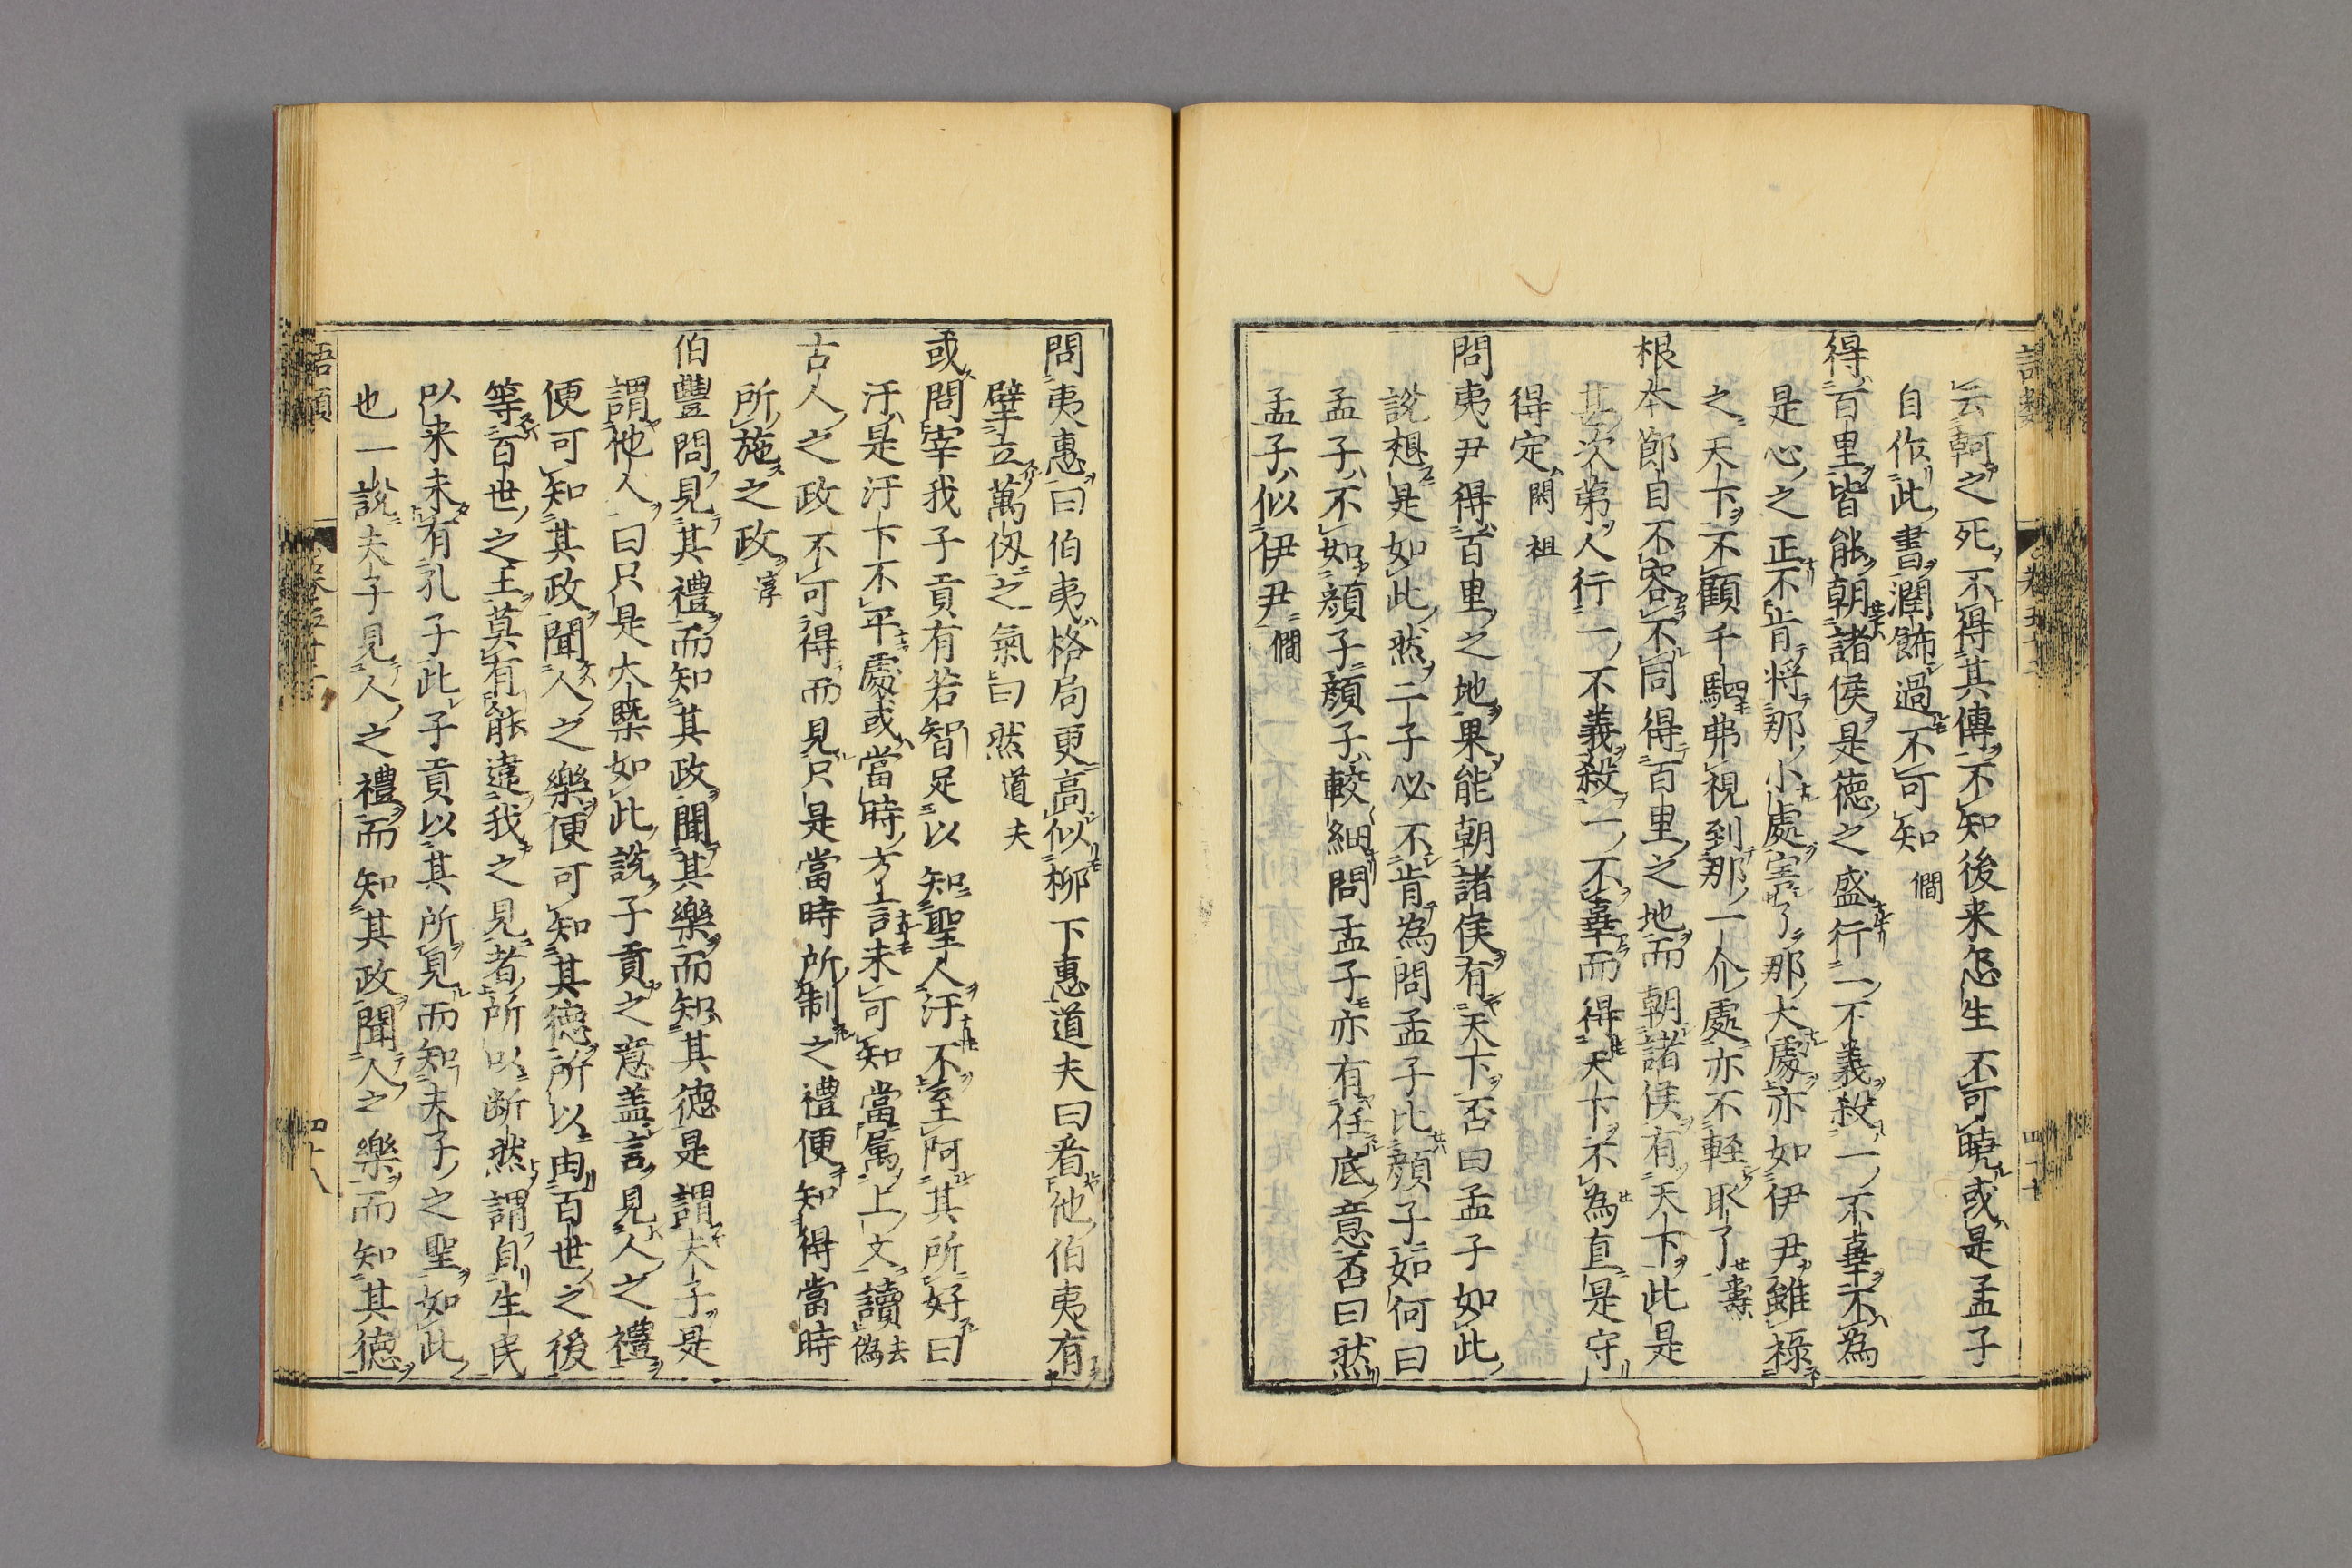 云軻之死不得其傳不知後来怎生不可曉或是孟子
自作此書潤飾過不可知 僩
得百里皆能朝諸侯是德之盛行一不義殺一不辜不為
是心之正不肯將那小處害了那大處亦如伊尹雖祿
之天下不顧千駟弗視到那一介處亦不輕取了 壽
根本節目不容不同得百里之地而朝諸侯有天下此是
甚次第人行一不義殺一不辜而得天下不為直是守
得定 閎祖
問夷尹得百里之地果能朝諸侯有天下否曰孟子如此
說想是如此然二子必不肯為問孟子比顏子如何曰
孟子不如顏子顏子較細問孟子亦有任底意否曰然
孟子似伊尹 僩
問夷惠曰伯夷格局更高似柳下惠道夫曰看他伯夷有
壁立萬仭之氣曰然 道夫
或問宰我子貢有若智足以知聖人汙不至阿其所好曰
汙是汙下不平處或當時方言未可知當屬上文讀 去偽
古人之政不可得而見只是當時所制之禮便知得當時
所施之政 淳
伯豐問見其禮而知其政聞其樂而知其德是謂夫子是
謂他人曰只是大槩如此說子貢之意蓋言見人之禮
便可知其政聞人之樂便可知其德所以由百世之後
等百世之王莫有能違我之見者所以斷然謂自生民
以来未有孔子此子貢以其所見而知夫子之聖如此
也一說夫子見人之禮而知其政聞人之樂而知其德
語類
四十八